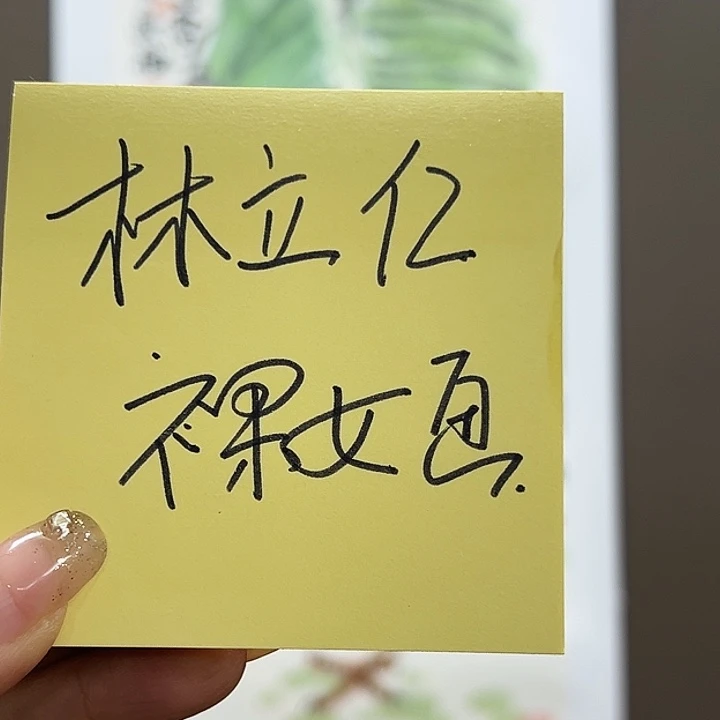 林立仁
裸女画